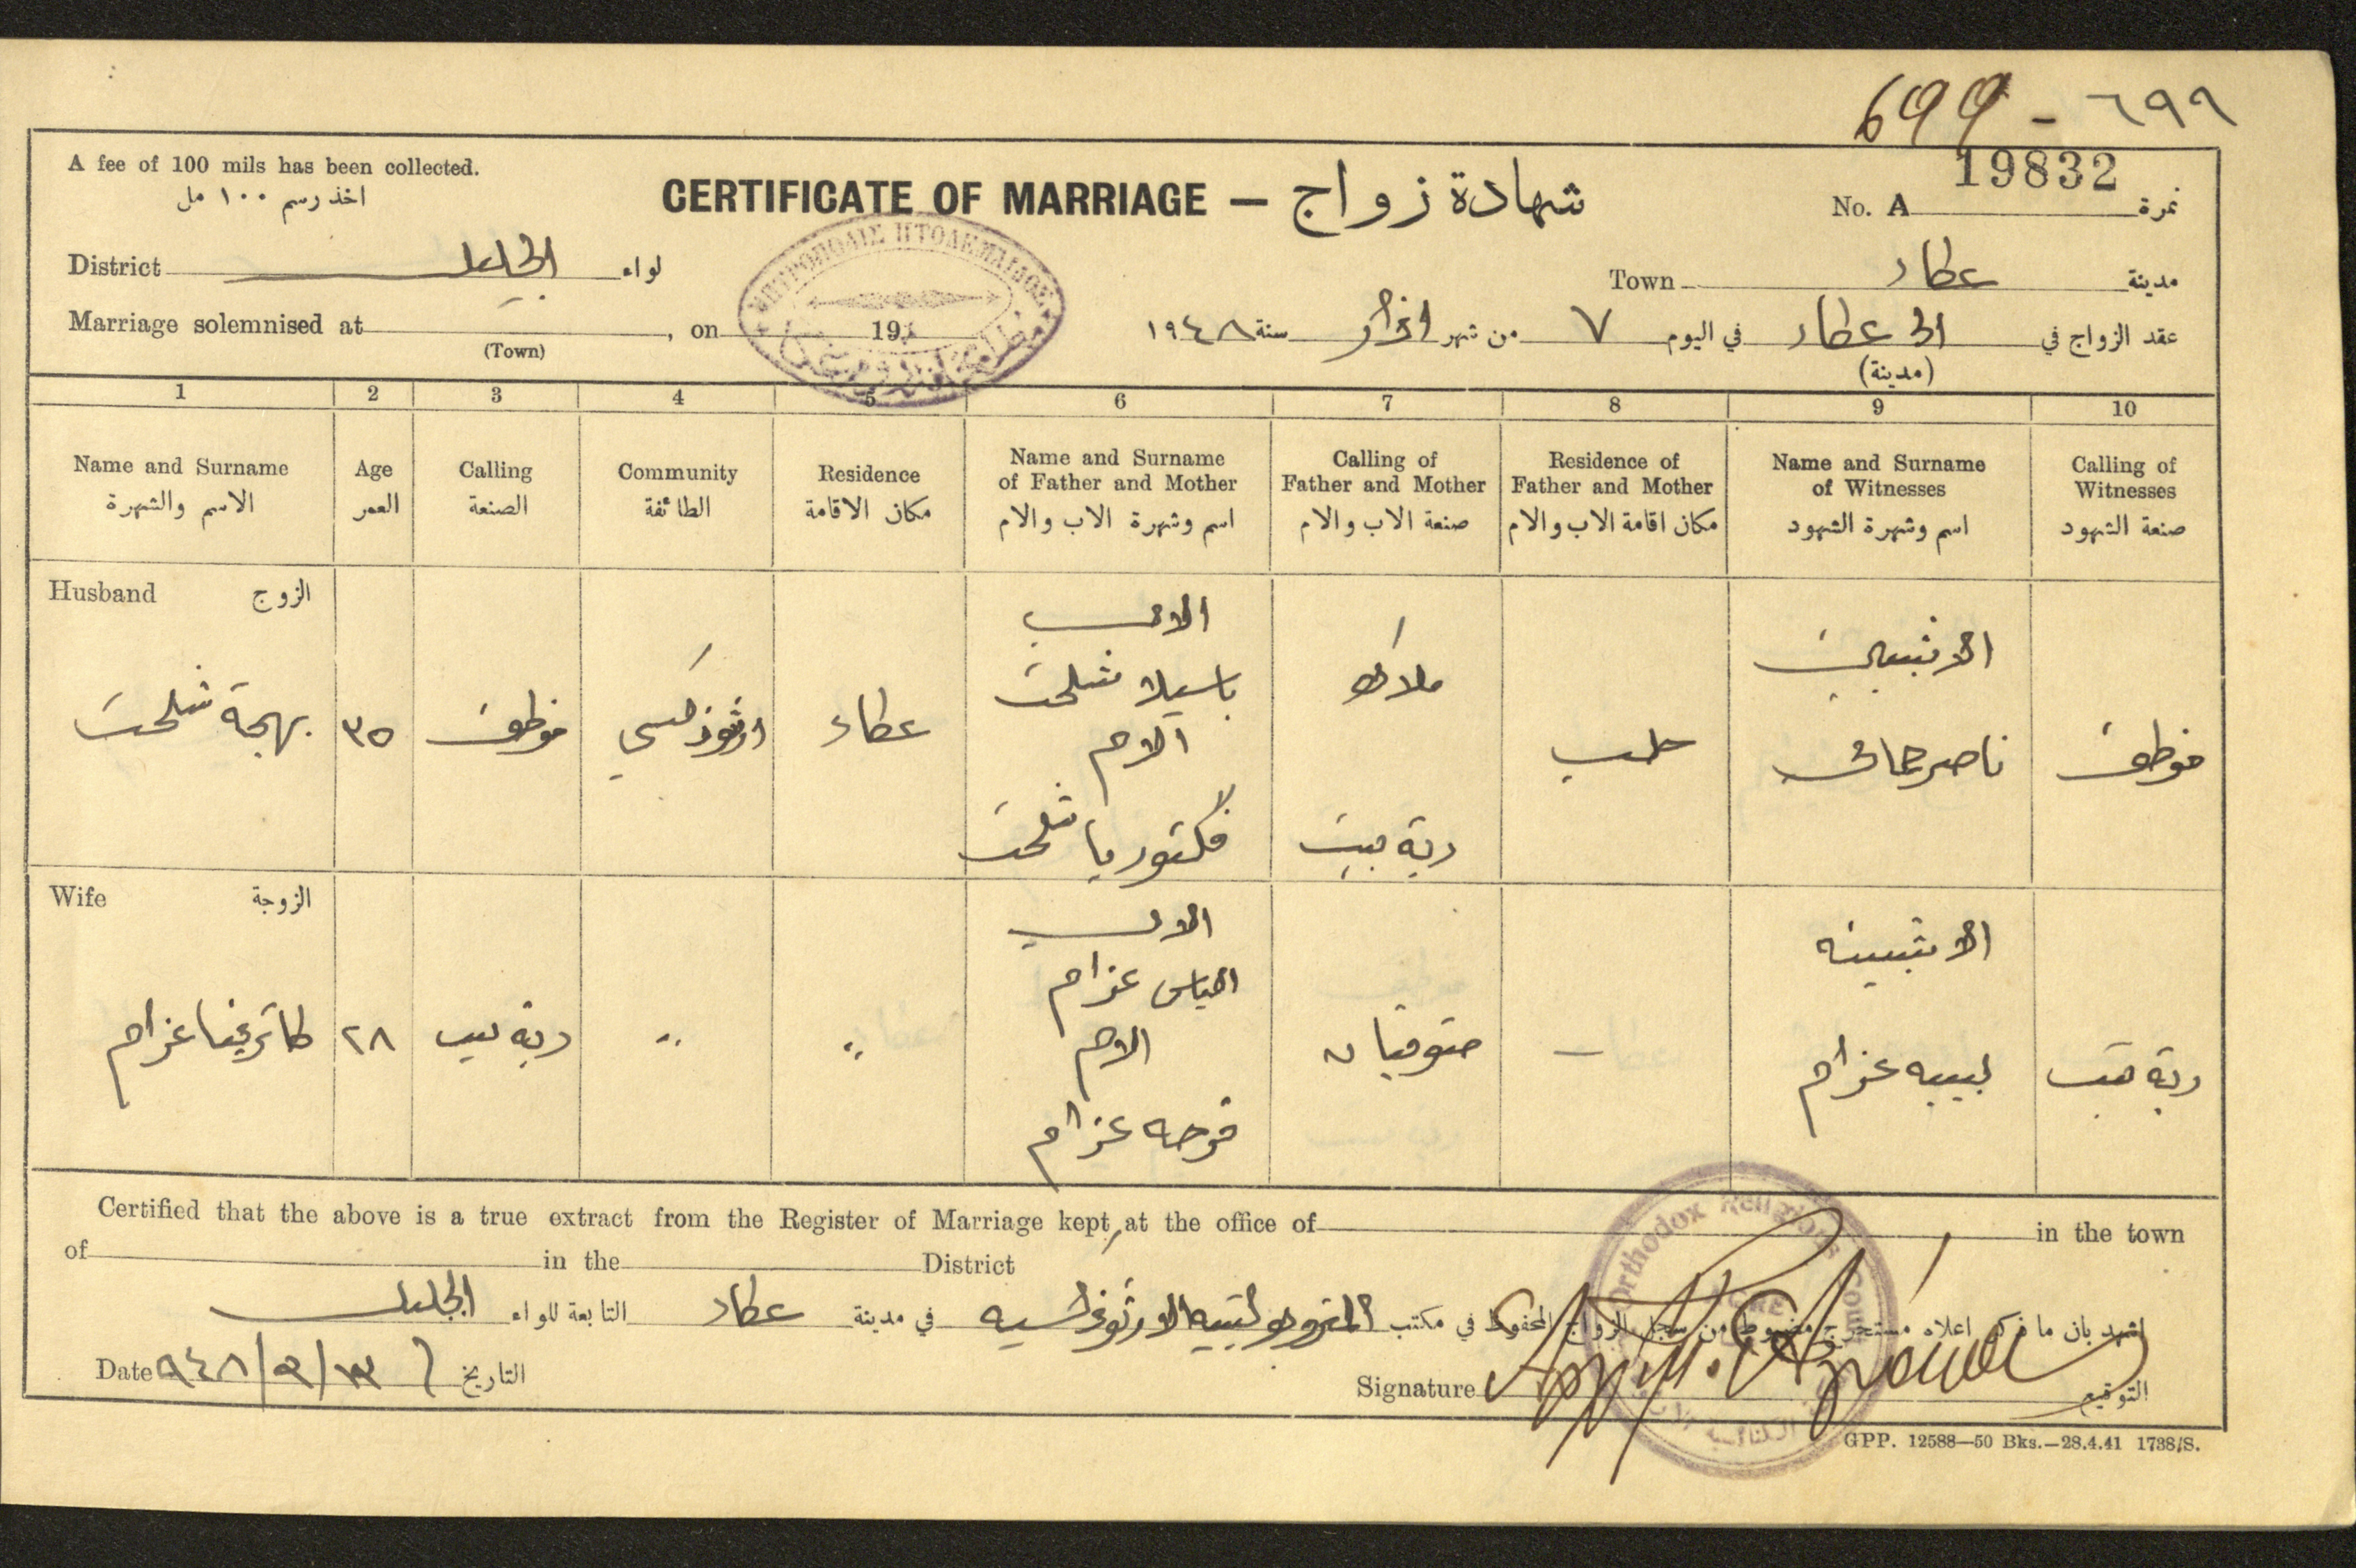 699 - ٦٩٩
A fee of 100 mils has been collected.
اخذ رسم ١٠٠ مل
CERTIFICATE OF MARRIAGE – شهادة زواج
No. A 19832 نمرة
District الجليل لواء
Town عكاء مدينة
ΜΗΤΡΟΠΟΛΙΣ ΠΤΟΛΕΜΑΙΔΟΣ
Marriage solemnised at , on 19
(Town)
عقد الزواج في عكاء في اليوم ٧ من شهر اذار سنة ١٩٤٨
(مدينة)
1 2 3 4 5 6 7 8 9 10
Name and Surname
الاسم والشهرة
Age
العمر
Calling
الصنعة
Community
الطائفة
Residence
مكان الاقامة
Name and Surname
of Father and Mother
اسم وشهرة الاب والام
Calling of
Father and Mother
صنعة الاب والام
Residence of
Father and Mother
مكان اقامة الاب والام
Name and Surname
of Witnesses
اسم وشهرة الشهود
Calling of
Witnesses
صنعة الشهود
Husband الزوج
بهجة شلحت
٣٥
موظف
ارثوذكسي
عكاء
الاب
باسيلا شلحت
الام
فكتوريا شلحت
ملاك
ربة بيت
حلب
الاشبين
ناصر
موظف
Wife الزوجة
كاترينا عزام
٢٨
ربة بيت
"
"
الاب
الياس عزام
الام
فرحه عزام
متوفيان
–
الاشبينه
لبيبه عزام
ربة بيت
Certified that the above is a true extract from the Register of Marriage kept at the office of in the town
of in the District
اشهد بان ما ذكر اعلاه مستخرج مضبوط من سجل الزواج المحفوظ في مكتب المتروبوليتيه الارثوذكسيه في مدينة عكاء التابعة للواء الجليل
Date ٩٤٨/٣/١٣ التاريخ
Signature التوقيع
Orthodox Religious Court
ACRE
GPP. 12588—50 Bks.—28.4.41 1738/S.